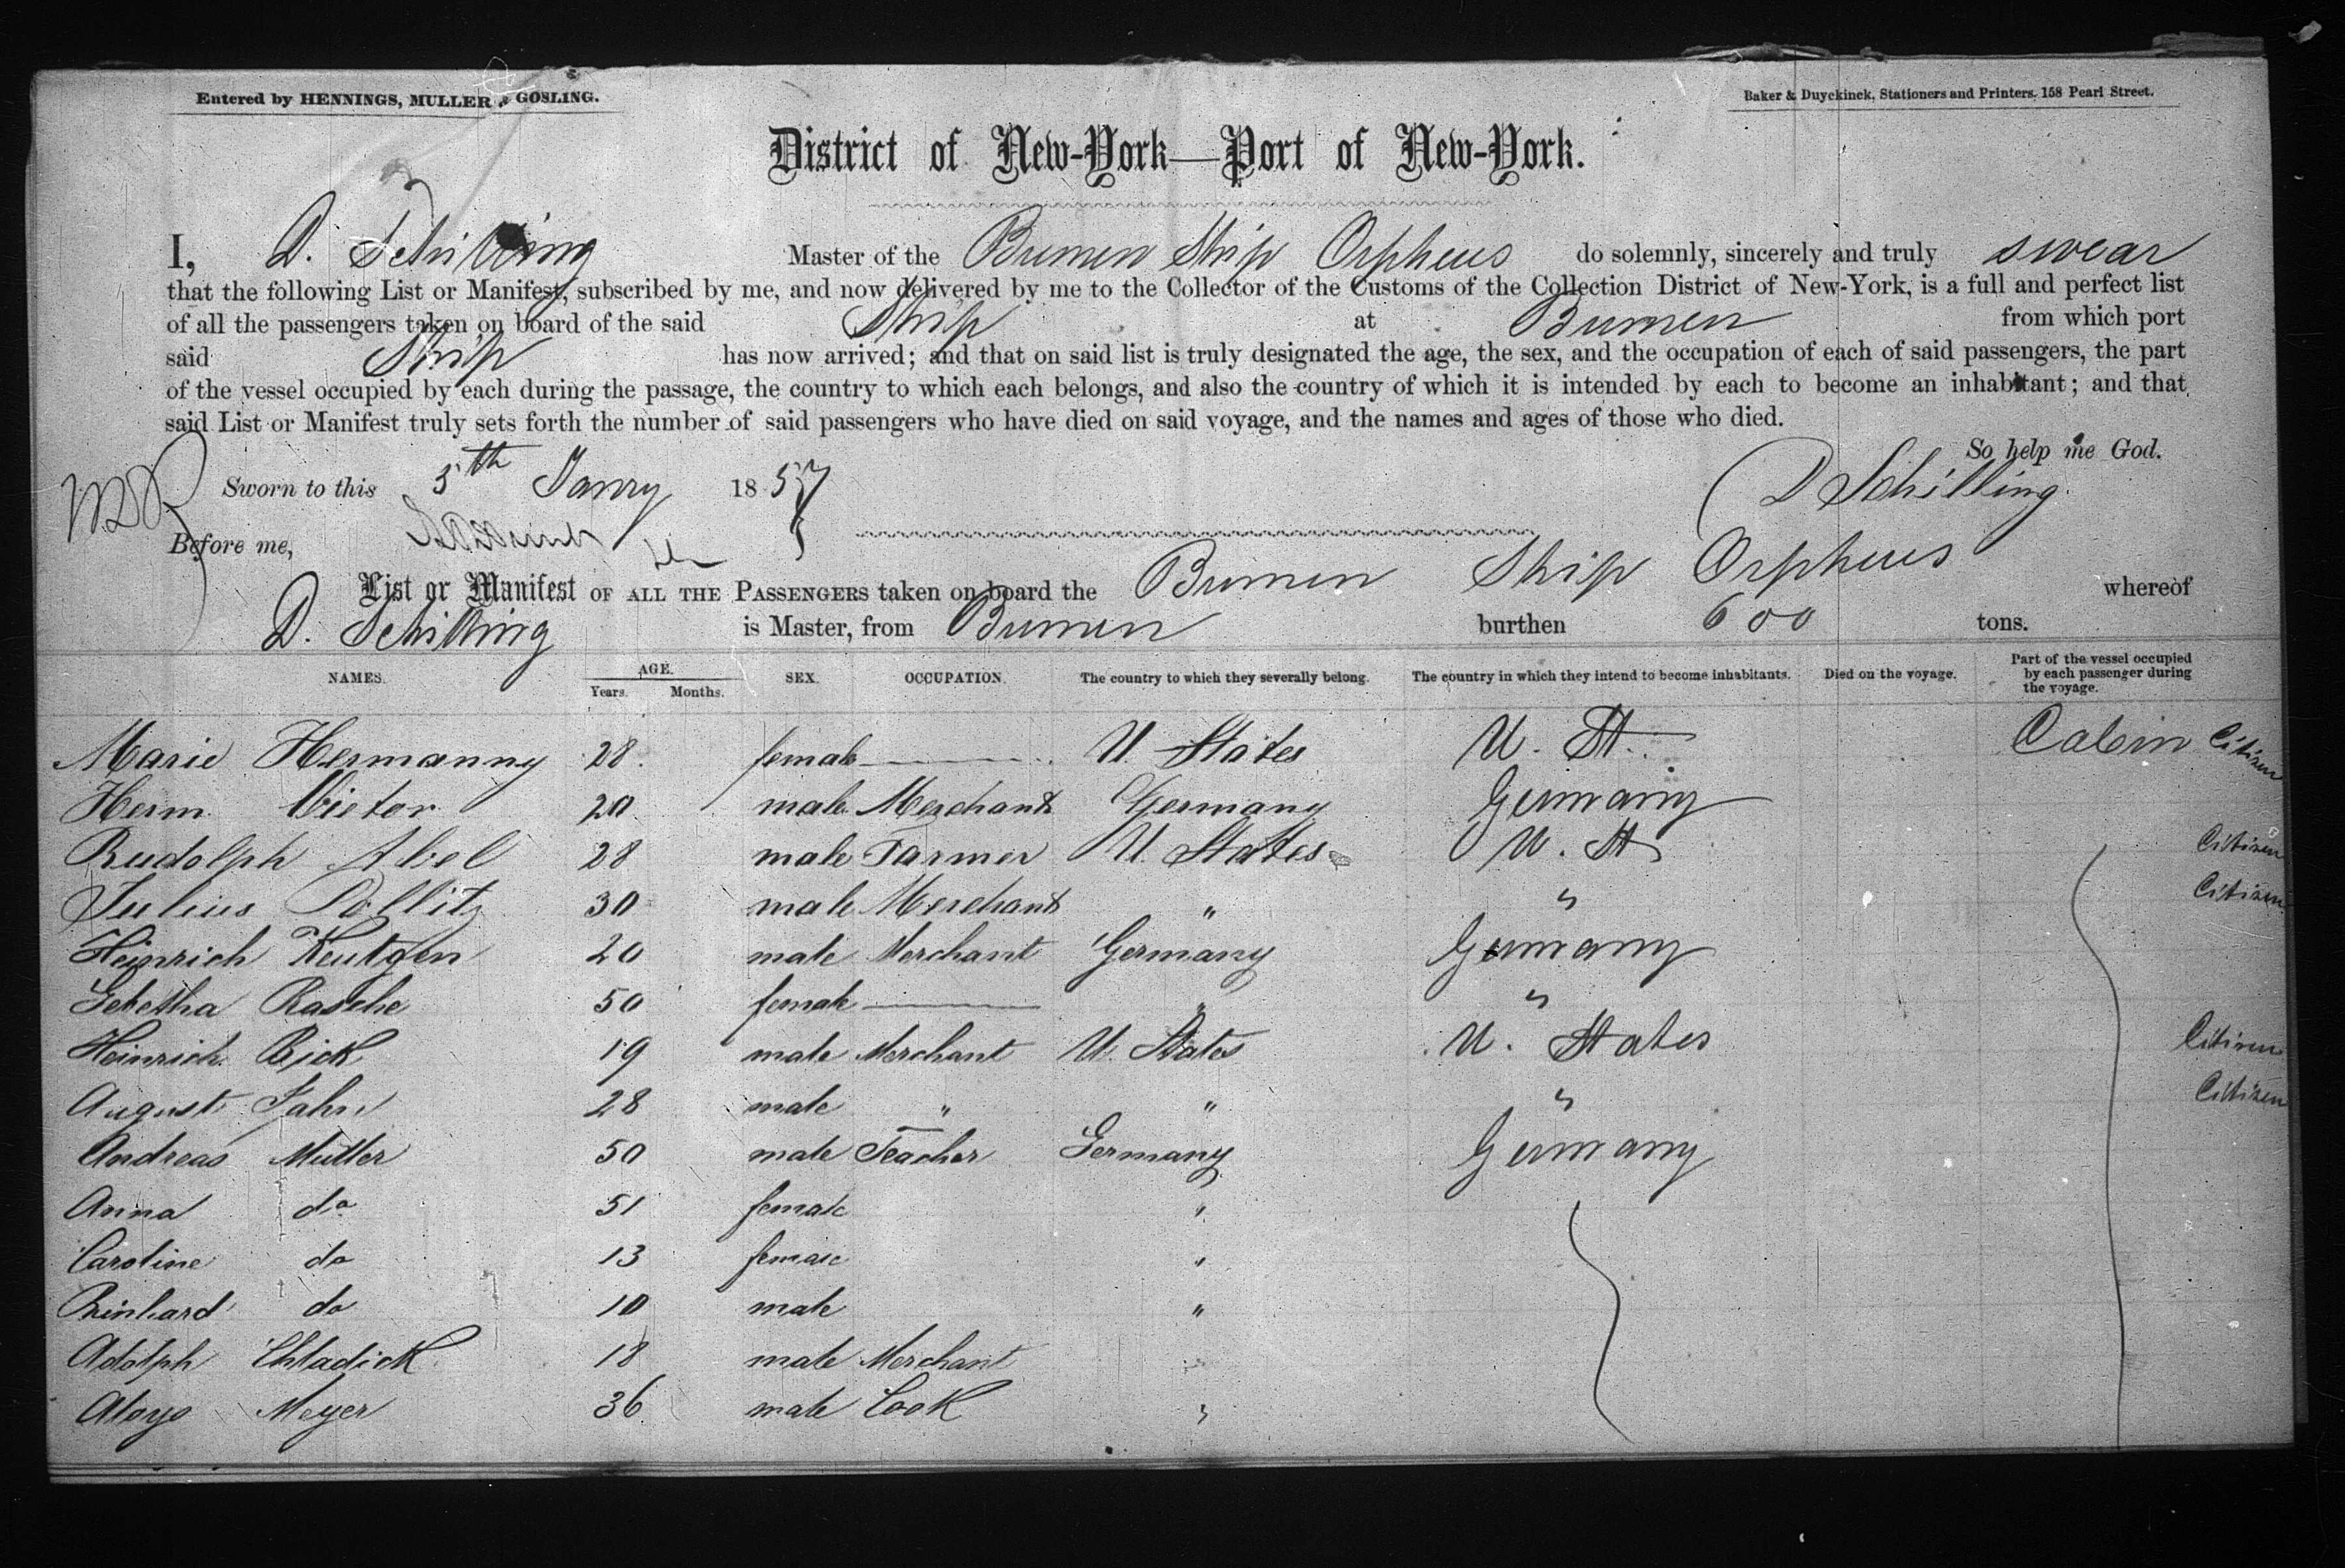 Entered by HENNINGS, MULLER & GOSLING.
Baker & Duyckinck, Stationers and Printers. 158 Pearl Street.
District of New-York—Port of New-York.
I, D. Schilling Master of the Bremen Ship Orpheus do solemnly, sincerely and truly swear
that the following List or Manifest, subscribed by me, and now delivered by me to the Collector of the Customs of the Collection District of New-York, is a full and perfect list
of all the passengers taken on board of the said Ship at Bremen from which port
said Ship has now arrived; and that on said list is truly designated the age, the sex, and the occupation of each of said passengers, the part
of the vessel occupied by each during the passage, the country to which each belongs, and also the country of which it is intended by each to become an inhabitant; and that
said List or Manifest truly sets forth the number of said passengers who have died on said voyage, and the names and ages of those who died.
So help me God.
Sworn to this 5th Janry 1857 D Schilling
Before me,
List or Manifest OF ALL THE PASSENGERS taken on board the Bremen Ship Orpheus whereof
D. Schilling is Master, from Bremen burthen 600 tons.
NAMES. AGE. Years. Months. SEX. OCCUPATION. The country to which they severally belong. The country in which they intend to become inhabitants. Died on the voyage. Part of the vessel occupied by each passenger during the voyage.
Marie Hermanny 28 female U. States U. St. Cabin Citizen
Herm Vietor 20 male Merchant Germany Germany
Rudolph Abel 28 male Farmer U. States U. St Citizen
Julius Pollitz 30 male Merchant " " Citizen
Heinrich Keutgen 20 male Merchant Germany Germany
Gebetha Rasche 50 female " "
Heinrich Bick 19 male Merchant U. States U. States Citizen
August Jahn 28 male " " " Citizen
Andreas Muller 50 male Teacher Germany Germany
Anna do 51 female "
Caroline do 13 female "
Reinhard do 10 male "
Adolph Chladick 18 male Merchant "
Aloys Meyer 36 male Cook "